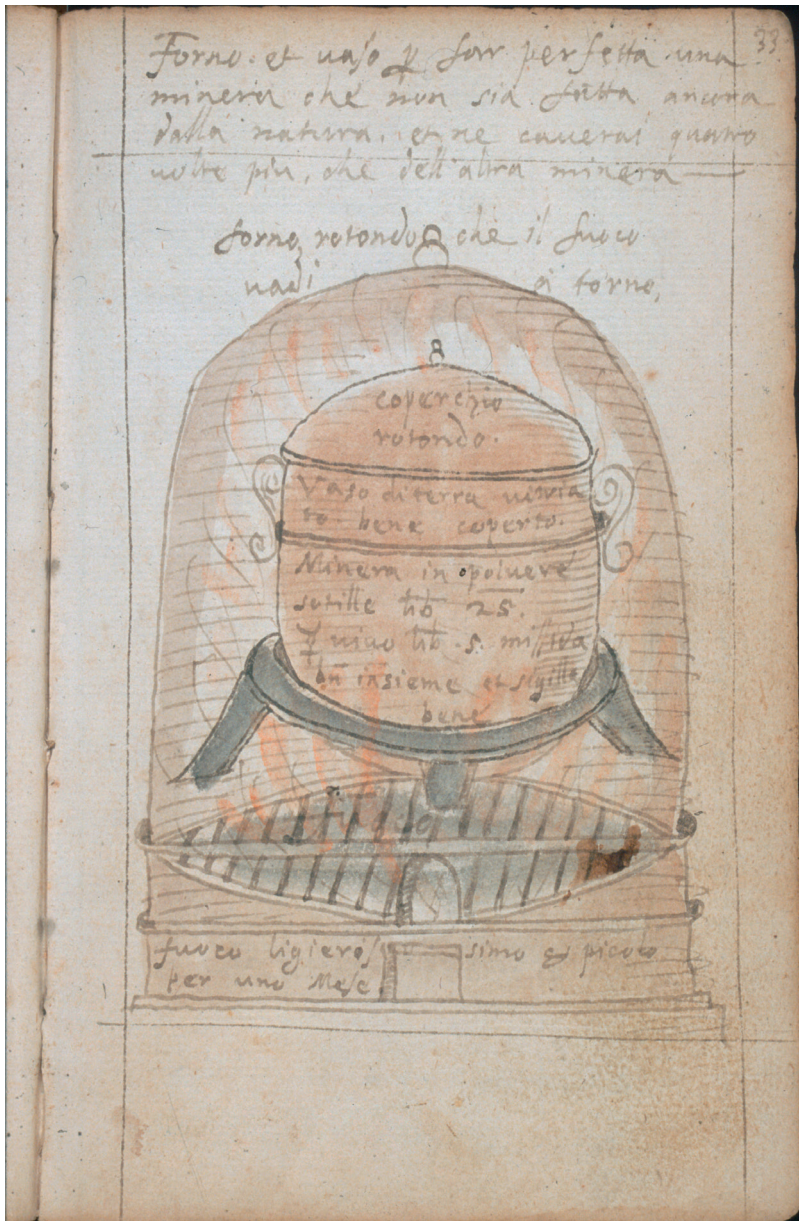 33
Forno. et vaso p far perfetta una
minera che non sia fatta ancora
dalla natura. et ne caverai quatro
volte piu, che dell'altra minera
forno rotondo che il fuoco
vadi a torno,
coperchio
rotondo.
Vaso di terra vitria
to bene coperto.
Minera in polvere
sotille lib 25.
☿ vivo lib .5. missida
bn insieme et sigilla
bene
fuoco ligieris simo & picolo
per uno Mese.